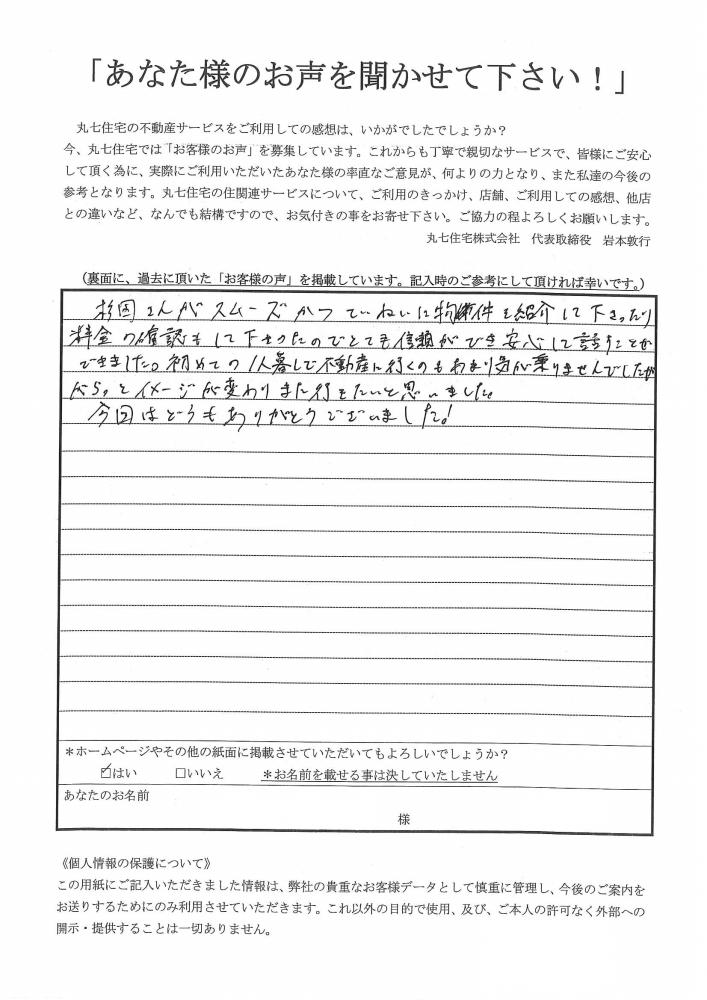 「あなた様のお声を聞かせて下さい！」
丸七住宅の不動産サービスをご利用しての感想は、いかがでしたでしょうか？
今、丸七住宅では「お客様のお声」を募集しています。これからも丁寧で親切なサービスで、皆様にご安心
して頂く為に、実際にご利用いただいたあなた様の率直なご意見が、何よりの力となり、また私達の今後の
参考となります。丸七住宅の住関連サービスについて、ご利用のきっかけ、店舗、ご利用しての感想、他店
との違いなど、なんでも結構ですので、お気付きの事をお寄せ下さい。ご協力の程よろしくお願いします。
丸七住宅株式会社　代表取締役　岩本敦行
（裏面に、過去に頂いた「お客様の声」を掲載しています。記入時のご参考にして頂ければ幸いです。）
さんがスムーズかつていねいに物件を紹介して下さったり
料金の確認もして下さったのでとても信頼ができ安心して話すことが
できました。初めての1人暮しで不動産に行くのもあまり気が乗りませんでしたが
とイメージが変わりまた行きたいと思いました。
今回はどうもありがとうございました!
＊ホームページやその他の紙面に掲載させていただいてもよろしいでしょうか？
☑はい　□いいえ　＊お名前を載せる事は決していたしません
あなたのお名前
様
《個人情報の保護について》
この用紙にご記入いただきました情報は、弊社の貴重なお客様データとして慎重に管理し、今後のご案内を
お送りするためにのみ利用させていただきます。これ以外の目的で使用、及び、ご本人の許可なく外部への
開示・提供することは一切ありません。